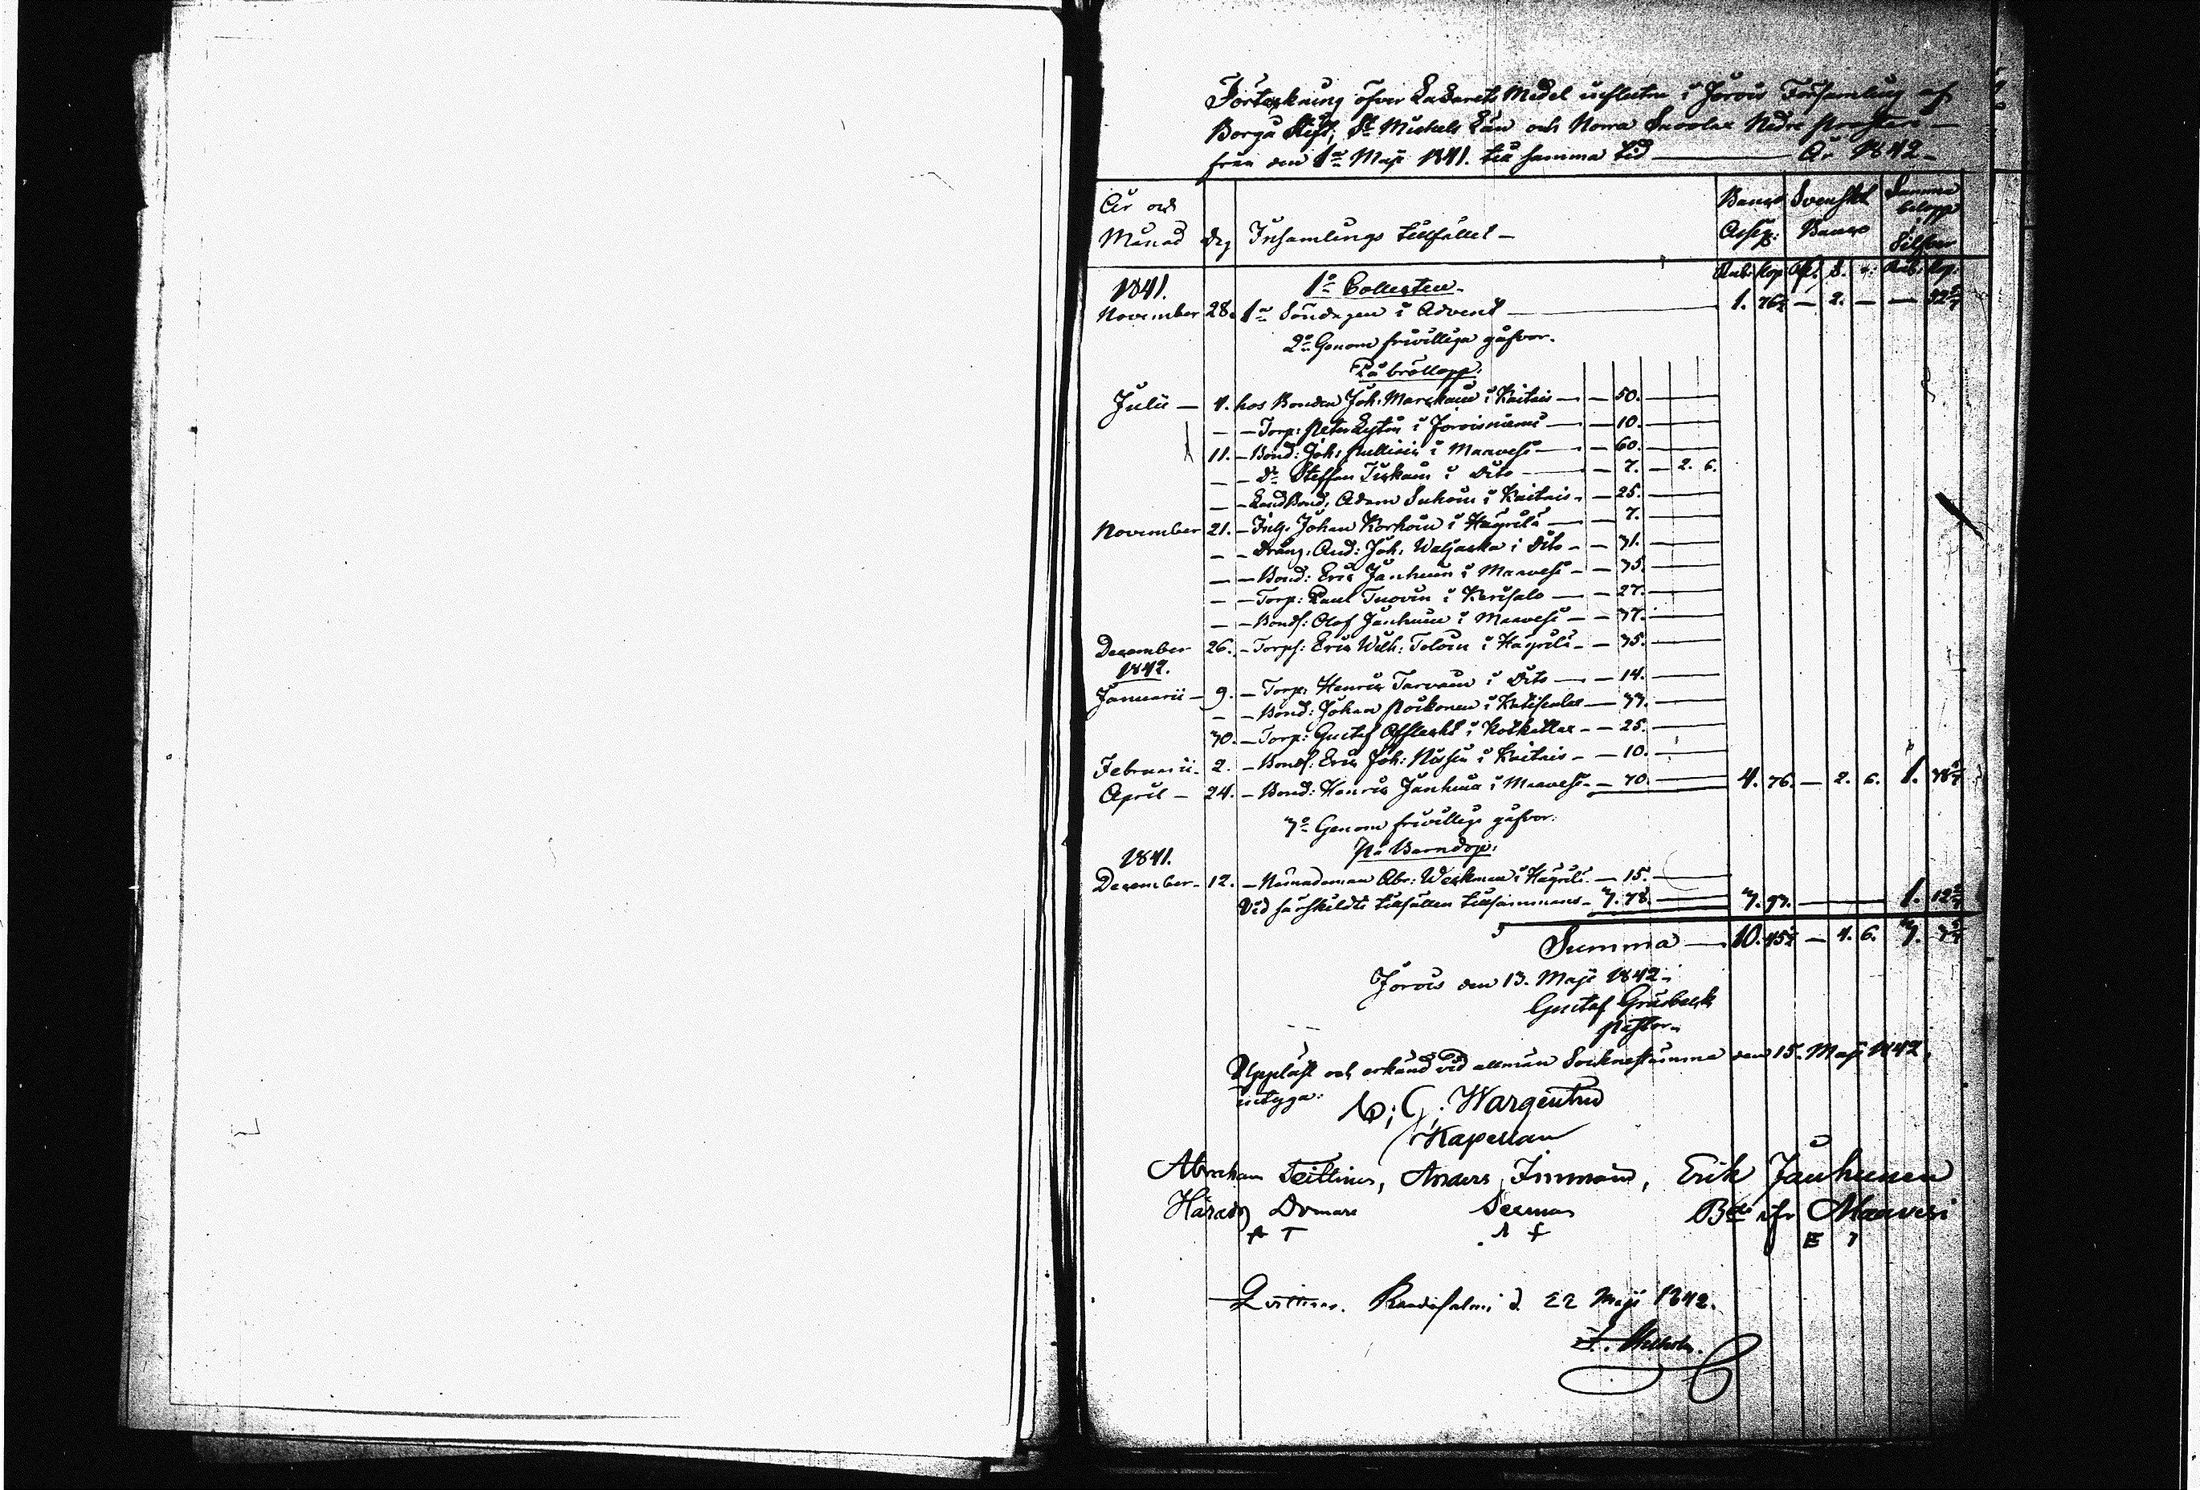 Förteckning öfver Lazarets Medel influtne i Jorois Församling af
Borgå Stift, St Michels Län och Norra Savolax Nedre Prosteri —
från den 1sta Maji 1841. till samma tid — År 1842 —
År och Månad Dag Insamlings tillfället — Banco Assig: Svenskt Banco Summa belopp i Silfver
Rub: Kop: R. s. r: Rub: Kop:
1841. 1o Collecten.
November 28. 1sta Söndagen i Advent — 1. — 2. — —
2o Genom frivilliga gåfvor.
På bröllopp:
Julii — 4. hos Bonden Joh: Marskain i Kaitais — 50. —
— — Torp: Peter Lytin i Joroisniemi — 10. —
11. — Bond: Joh: Pullisin i Maavesi — 60. —
— — Do Steffan Turkain i Dito — 7. — 2. 6.
— — LandBond: Adam Suhoin i Kaitais — 25. —
November 21. — Inh: Johan Korhoin i Häyrilä — 7. —
— — Dräng: And: Joh: Waljacka i Dito — 31. —
— — Bond: Eric Jänhuin i Maavesi — 35. —
— — Torp: Paul Tuovin i Kerisalo — 27. —
— — Bonds: Olof Jänhuin i Maavesi — 37. —
December 26. — Torps: Eric Wilh: Tolvin i Häyrilä — 35. —
1842.
Januarii — 9. — Torp: Henric Tarvain i Dito — 14. —
— — Bond: Johan Roikonen i — 33. —
30. — Torp: Gustaf i Koskella — 25. —
Februarii — 2. — Bonds: Eric Joh: Nissin i Kaitais — 10. —
April — 24. — Bond: Henric Jänhuin i Maavesi — 70. — 4. 76. — 2. 6. 1.
3o Genom frivillige gåfvor:
1841. På Barndop:
December — 12. — Nämndeman Abr: Weckman i Häyrilä — 15. —
Vid särskildte tillfällen tillsammans — 3. 78. — 3. 93. — 1.
Summa — 10. — 4. 6. 3.
Jorois den 13. Maji 1842.
Gustaf Grasbeck
Pastor.
Uppläst och erkänd vid allmän Sockenstämma den 15. Maji 1842,
intyga:
G: Wargentin
Kapellan
Abraham Teittinen, Anders Immonen, Erik Jänhunen
Härads Domare Sexman Bde ifr Maavesi
A T A I E J
Qvitteras. Randasalmi d. 22 Maji 1842.